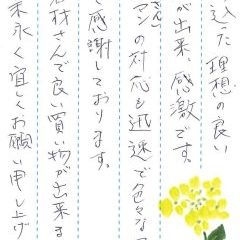 込た理想の良い
が出来、感激です。
さん)マンの対応も迅速で色々な
感謝しております。
材さんで良い買い物が出来ま
末永く宜しくお願い申し上げ